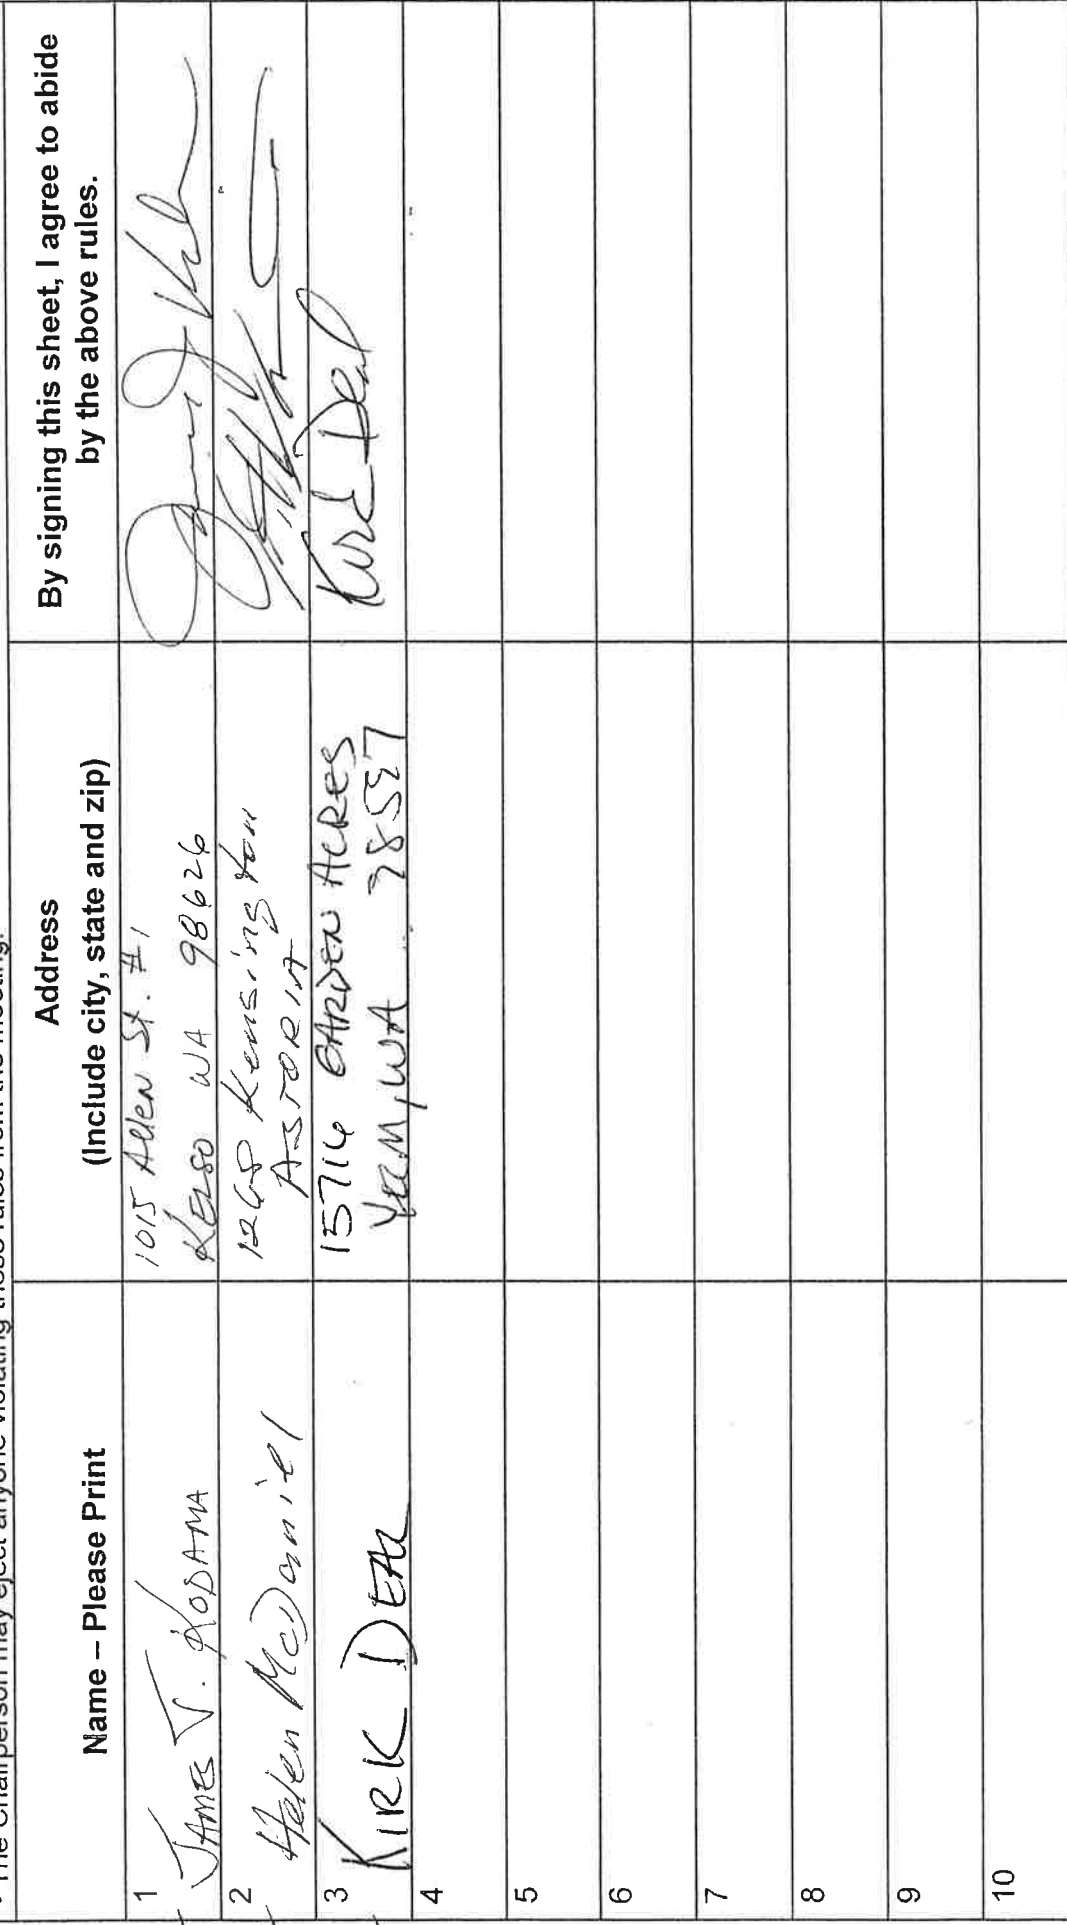 The Chairperson may eject anyone violating these rules from the meeting.
Name – Please Print
Address
(Include city, state and zip)
By signing this sheet, I agree to abide
by the above rules.
1
JAMES J. KODAMA
1015 Allen St. #1
KELSO WA 98626
2
Helen McDaniel
1268 Kensington
ASTORIA
3
KIRK DEAL
15716 GARDEN ACRES
WA
Kirk Deal
4
5
6
7
8
9
10